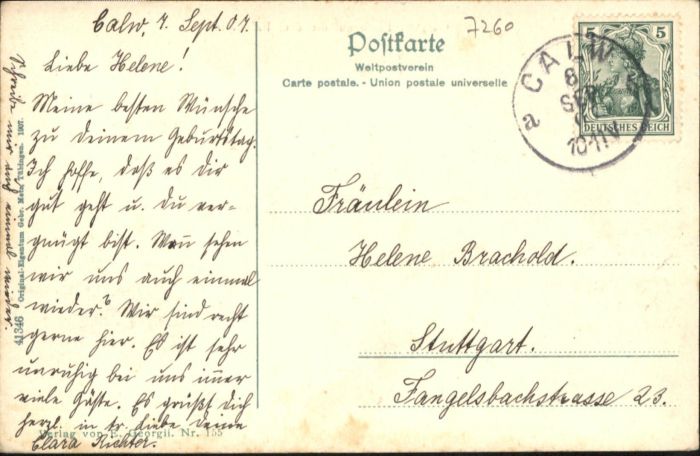 Calw, 7. Sept. 07.
Liebe Helene!
Meine besten Wünsche
zu Deinem Geburtstag.
Ich hoffe, daß es Dir
gut geht u. Du ver-
gnügt bist. Wann sehen
wir uns auch einmal
wieder? Wir sind recht
gerne hier. Es ist sehr
unruhig bei uns immer
viele Gäste. Es grüßt Dich
herzl. in tr. Liebe Deine
Clara Richter.
Schreibe mir auch einmal wieder.
41346 Original-Eigentum Gebr. Metz, Tübingen. 1907.
Verlag von E. Georgii. Nr. 155
7260
Postkarte
Weltpostverein
Carte postale. - Union postale universelle
5 5
DEUTSCHES REICH
CALW
8
SEP
10-11V
a
Fräulein
Helene Brachold.
Stuttgart.
Fangelsbachstrasse 23.